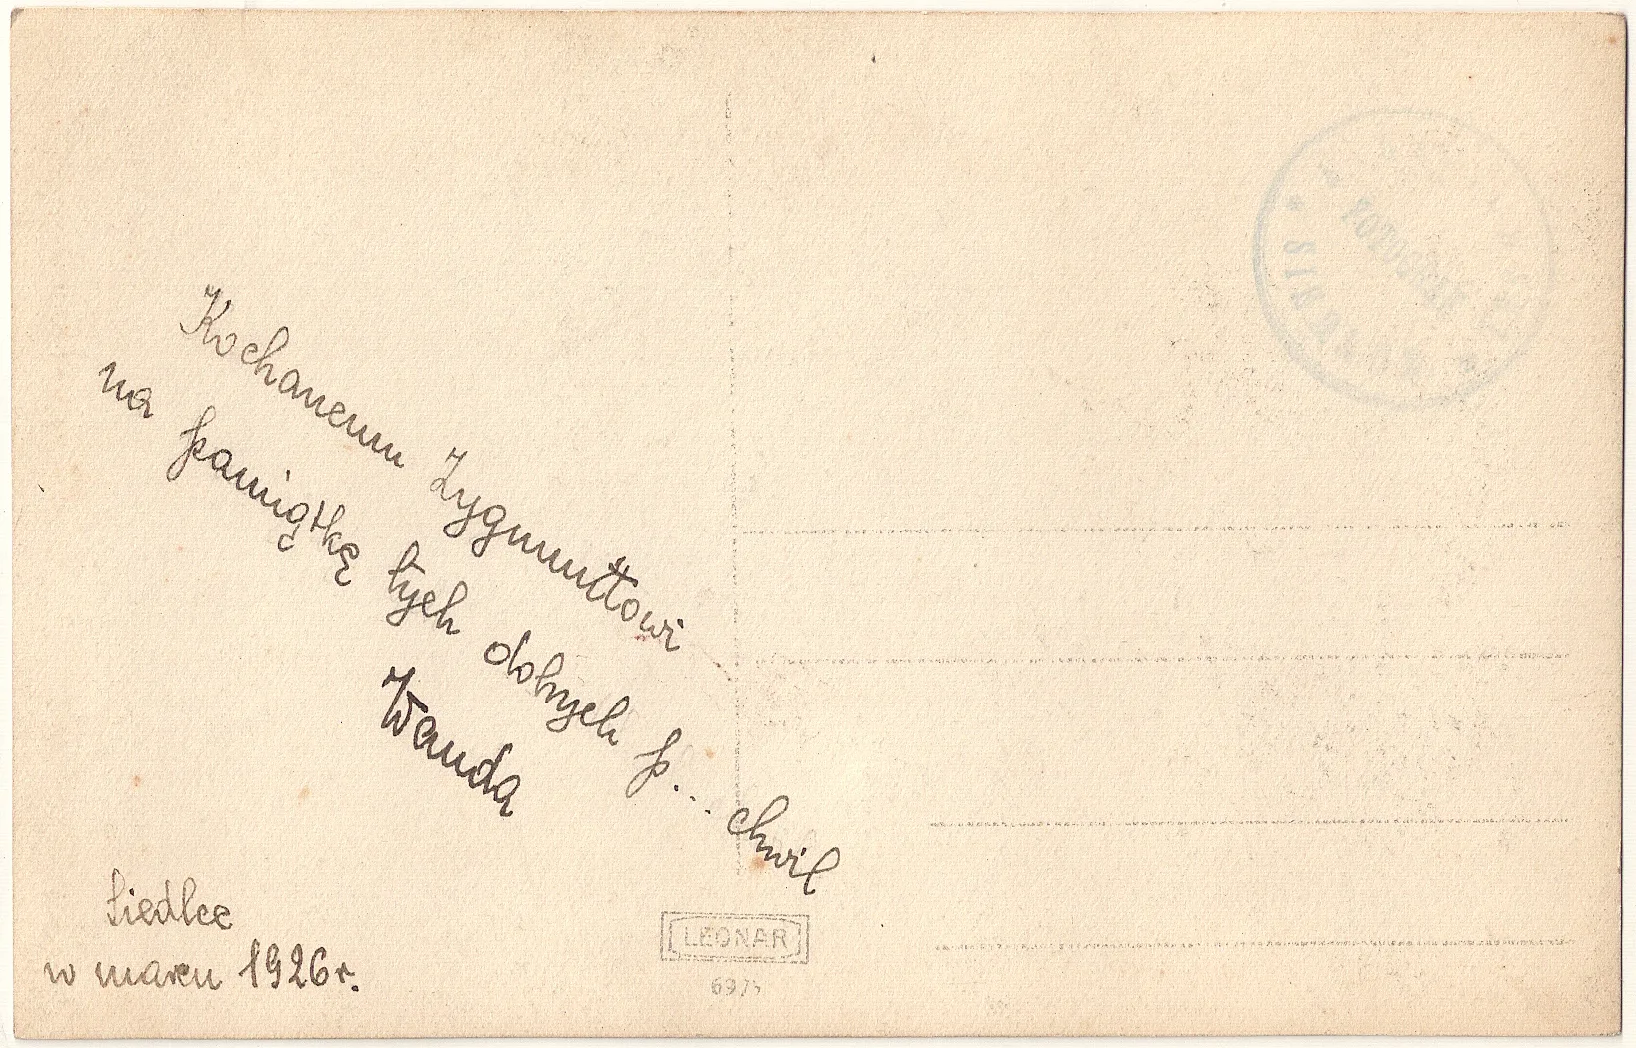 Kochanemu Zygmuntowi
na pamiątkę tych dobrych p... chwil
Wanda
Siedlce
w marcu 1926 r.
LEONAR